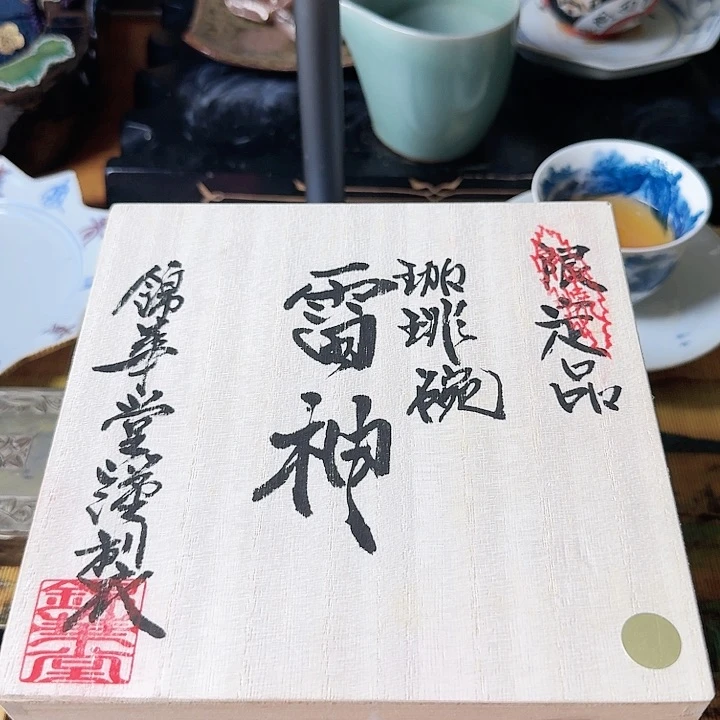 限定品
珈琲碗
雷神
錦華堂謹製
錦華堂